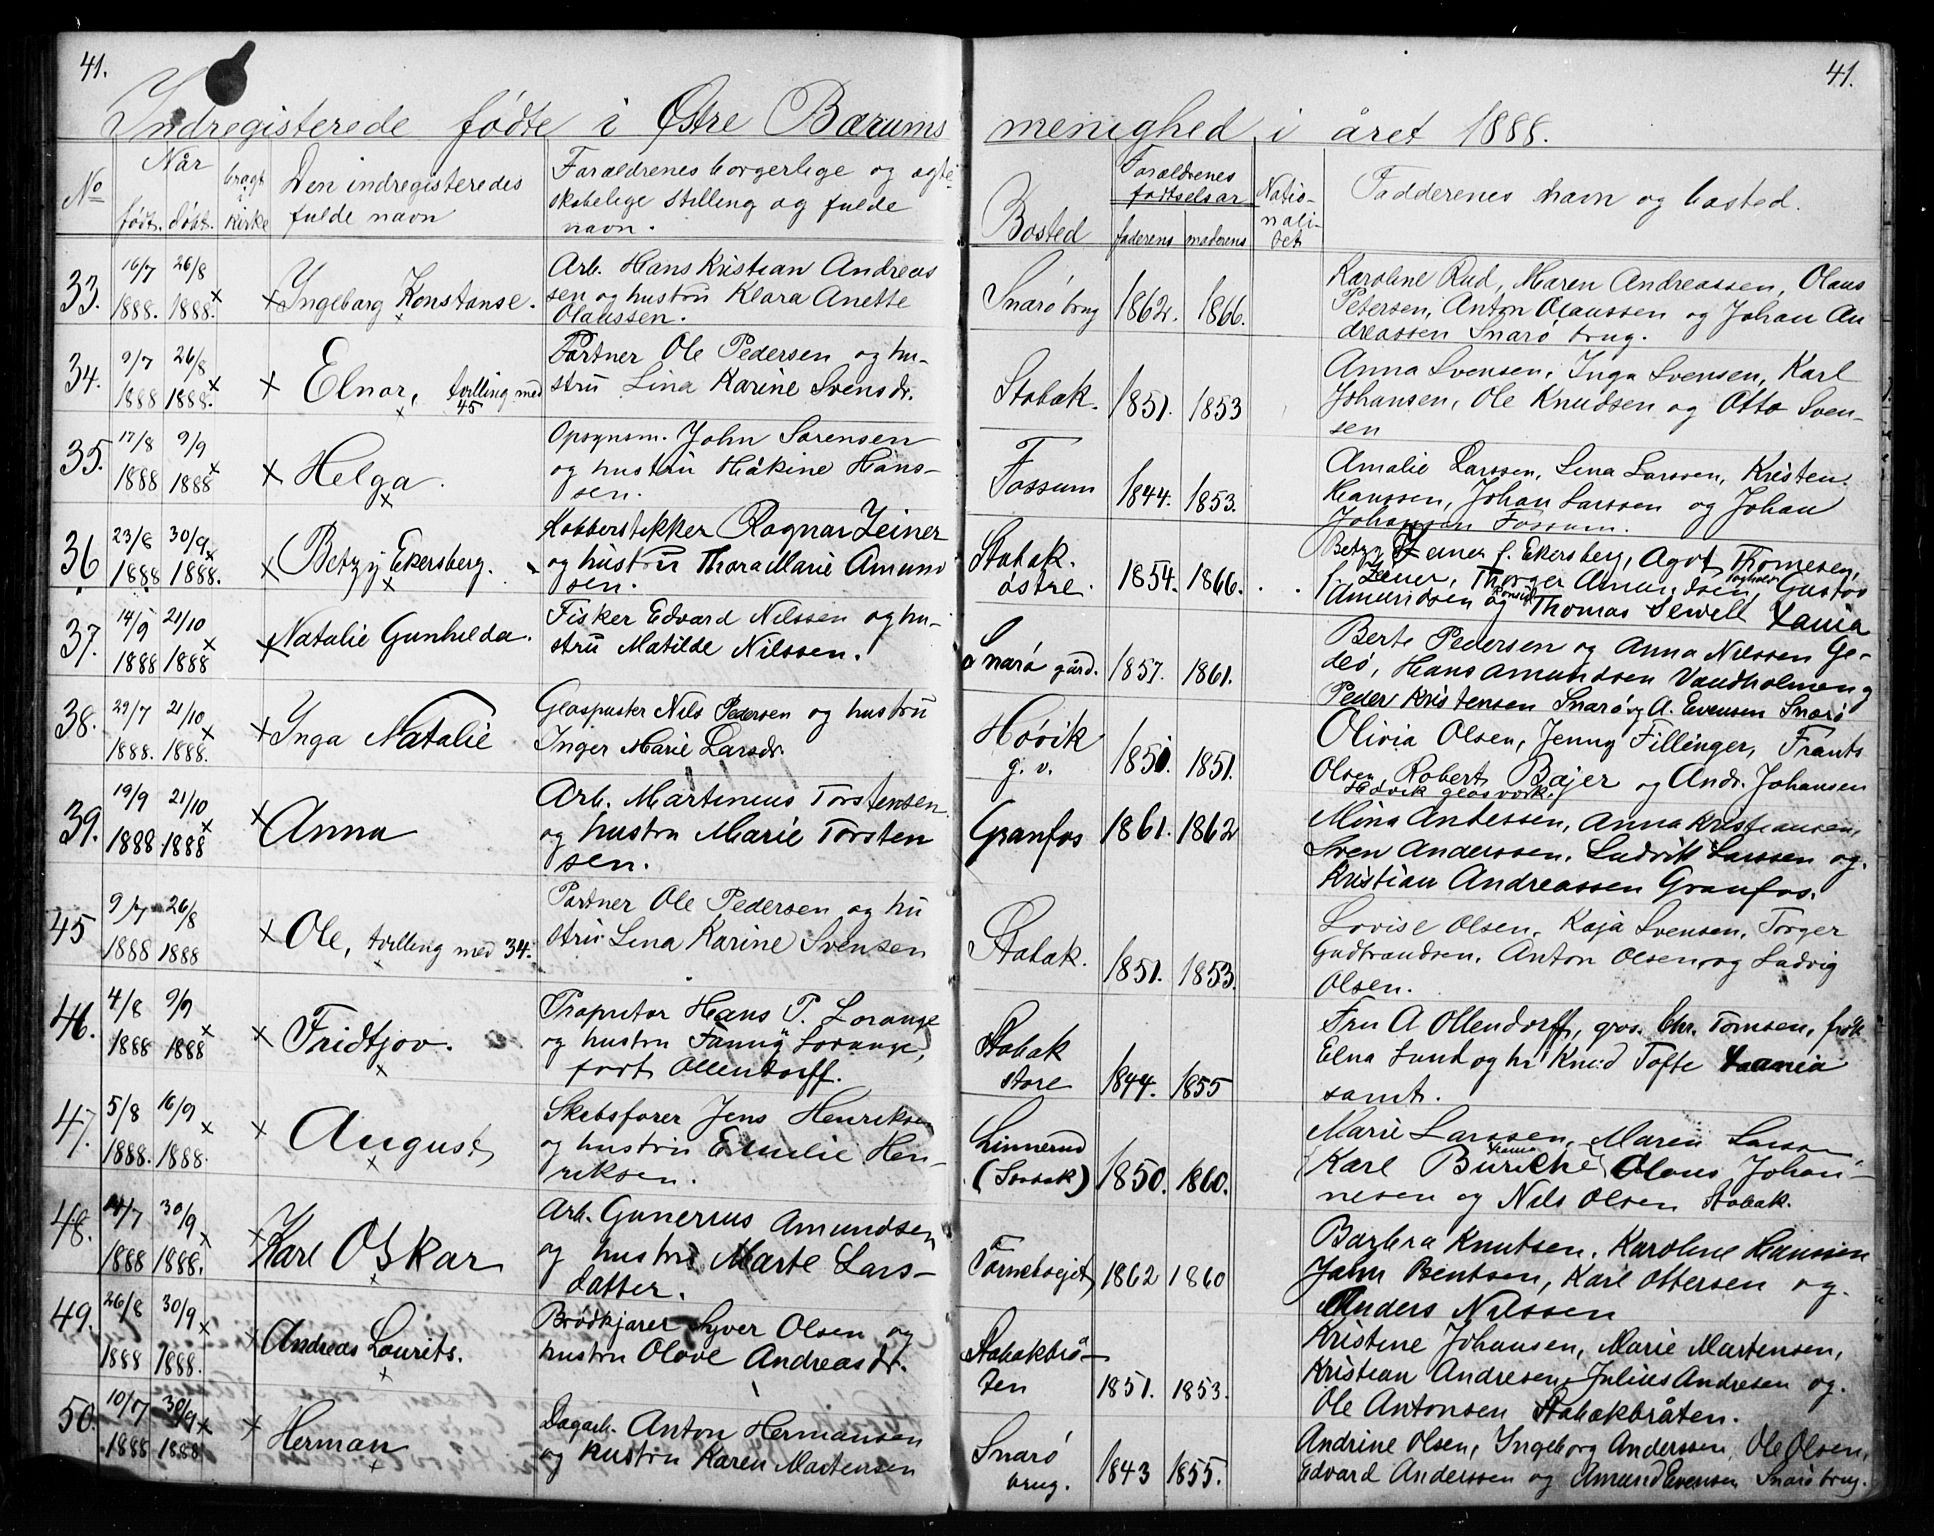 41.
41.
Indregisterede fødte i Østre Bærums menighed i året 1888.
No
Når
født. døbt.
bragt i kirke
Den indregisteredes
fulde navn
Foraldrenes borgerlige og ægte-
skabelige stilling og fulde
navn.
Bosted
Foraldrenes
fødselsår
faderens moderens
Natio-
nali-
tet
Fadderenes navn og bosted.
33. 16/7 1888. 26/8 1888. Ingeborg Konstanse.
Arb. Hans Kristian Andreas
sen og hustru Klara Anette
Olaussen.
Snarø brug 1862. 1866.
Karoline Rud, Maren Andreassen, Olaus
Petersen, Anton Olaussen og Johan An
dreassen Snarø brug.
34. 9/7 1888 26/8 1888. Elnar, tvilling med 45
Partner Ole Pedersen og hu-
stru Lina Karine Svensdr.
Stabæk. 1851. 1853
Anna Svensen, Inga Svensen, Karl
Johansen, Ole Knudsen og Otto Sven-
sen
35. 17/8 1888 9/9 1888 Helga.
Opsynsm. John Sørensen
og hustru Håkine Hans-
sen.
Fossum 1844. 1853.
Amalie Larssen, Lina Larssen, Kristen
Hanssen, Johan Larssen og Johan
Johansen Fossum.
36 23/8 1888 30/9 1888. Betzy Ekersberg.
Kobberstikker Ragnar Zeiner
og hustru Thora Marie Amund
sen.
Stabæk østre. 1854. 1866.
Betzy Zeiner f. Ekersberg, Agot Thomesen,
f. Zeiner, Thorger Amundsen, Gustav
Amundsen og Thomas Sewell
37. 14/9 1888 21/10 1888 Natalie Gunhilda.
Fisker Edvard Nilssen og hu-
stru Matilde Nilssen.
Snarø gård. 1857. 1861.
Berte Pedersen og Anna Nilssen Ge-
deø, Hans Amundsen Vandholmen og
Peder Kristensen Snarø og A. Evensen Snarø
38. 29/7 1888. 21/10 1888. Inga Natalie
Glaspuster Nils Pedersen og hustru
Inger Marie Larsdr.
Høvik g. v. 1851. 1851.
Olivia Olsen, Jenny Fillinger, Frants
Olsen, Robert Bajer og Andr. Johansen
Høvik glasværk.
39. 19/9 1888 21/10 1888 Anna
Arb. Martinius Torstensen
og hustru Marie Torsten
sen.
Granfos 1861. 1862
Mina Antessen, Anna Kristiansen,
Sven Anderssen, Ludvik Larssen og
Kristian Andreassen Granfos.
45 9/7 1888 26/8 1888 Ole, tvilling med 34.
Partner Ole Pedersen og hu
stru Lina Karine Svensen
Stabæk. 1851. 1853.
Lovise Olsen, Kaja Svensen, Torger
Gudbrandsen, Anton Olsen og Ludvig
Olsen.
46. 4/8 1888 9/9 1888 Fridtjov.
Propritær Hans P. Lorange
og hustru Fanny Lorange,
født Ollendorff.
Stabæk store 1844. 1855
Fru A Ollendorff, gros. Chr. Tomsen, frøk
Elna Lund og hr. Knud Tofte
samt.
47. 5/8 1888. 16/9 1888. August
Skibsfører Jens Henriksen
og hustru Emilie Hen-
riksen.
Linnerud (Stabæk) 1850. 1860.
Marie Larssen, Maren Larsen
Karl Buriche Olaus Johan-
nesen og Nils Olsen Stabæk.
48. 14/7 1888 30/9 1888. Karl Oskar
Arb. Gunerius Amundsen
og hustru Marte Lars-
datter.
Fornebogjet 1862 1860
Barbra Knutsen, Karoline Hanssen
John Bentsen, Karl Ottersen og
Anders Nilssen
49. 26/8 1888 30/9 1888. Andreas Laurits.
Brødkjører Syver Olsen og
hustru Olove Andreasdr.
Stabækbrå-
ten 1851. 1853.
Kristine Johansen, Marie Martensen,
Kristian Andresen, Julius Andresen og
Ole Antonsen Stabækbråten.
50. 10/7 1888 30/9 1888 Herman
Dagarb. Anton Hermansen
og hustru Karen Martensen
Snarø brug. 1843 1855.
Andrine Olsen, Ingeborg Anderssen, Ole Olsen,
Edvard Anderssen og Amund Evensen Snarø brug.